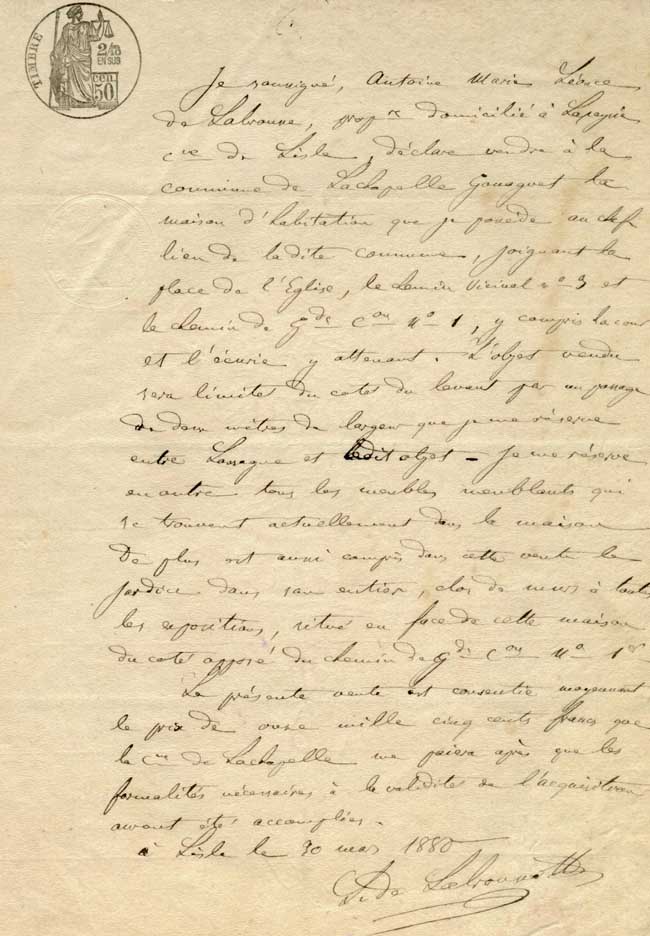 TIMBRE
2/10
EN SUS
50
CEN
Je soussigné, Antoine Marie Léonce
de Labrousse, propre domicilié à
cne de Lisle, déclare vendre à la
commune de Lachapelle Gonaguet la
maison d'habitation que je possède au chef
lieu de la dite commune, joignant la
place de l'Eglise, le chemin vicinal no 3 et
le chemin de Gde Con No 1, y compris la cour
et l'écurie y attenant. L'objet vendu
sera limité du coté du levant par un passage
de deux mètres de largeur que je me réserve
entre et ledit objet - Je me réserve
en outre tous les meubles meublants qui
se trouvent actuellement dans la maison
De plus est aussi compris dans cette vente le
jardin dans son entier, clos de murs à toutes
les expositions, situé en face de cette maison
du coté opposé du chemin de Gde Con No 1er
La présente vente est consentie moyennant
le prix de onze mille cinq cents francs que
la cne de Lachapelle me paiera après que les
formalités nécessaires à la validité de l'acquisition
auront été accomplies.
à Lisle le 30 mars 1880
de Labrousse